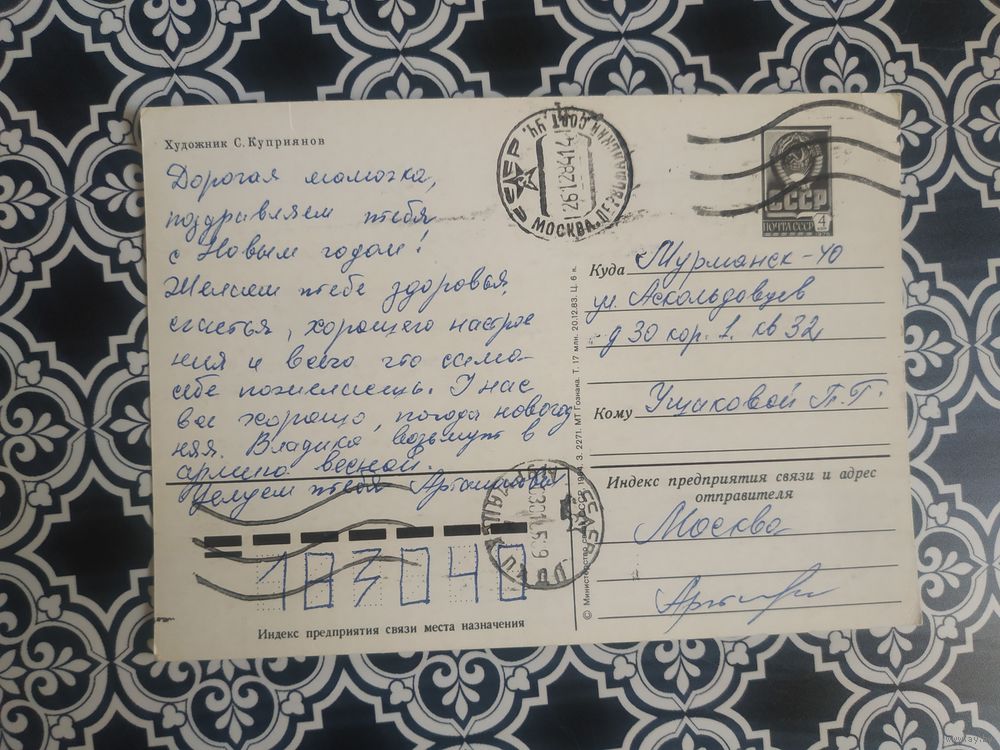 Художник С. Куприянов
Дорогая мамочка,
поздравляем тебя
с Новым годом!
Желаем тебе здоровья,
счастья, хорошего настрое
ния и всего что сама
себе пожелаешь. У нас
все хорошо, погода новогод
няя. Владика возьмут в
армию весной.
Целуем тебя
СССР
МОСКВА
26128414
СССР
ПОЧТА СССР
4
Куда Мурманск-40
ул Аскольдовцев
д 30 кор. 1. кв 32
Кому Ушаковой П.Г.
Индекс предприятия связи и адрес
отправителя
Москва
103040
Индекс предприятия связи места назначения
© Министерство связи СССР, 1984. З. 2271. МТ Гознака. Т. 17 млн. 20.12.83. Ц. 6 к.